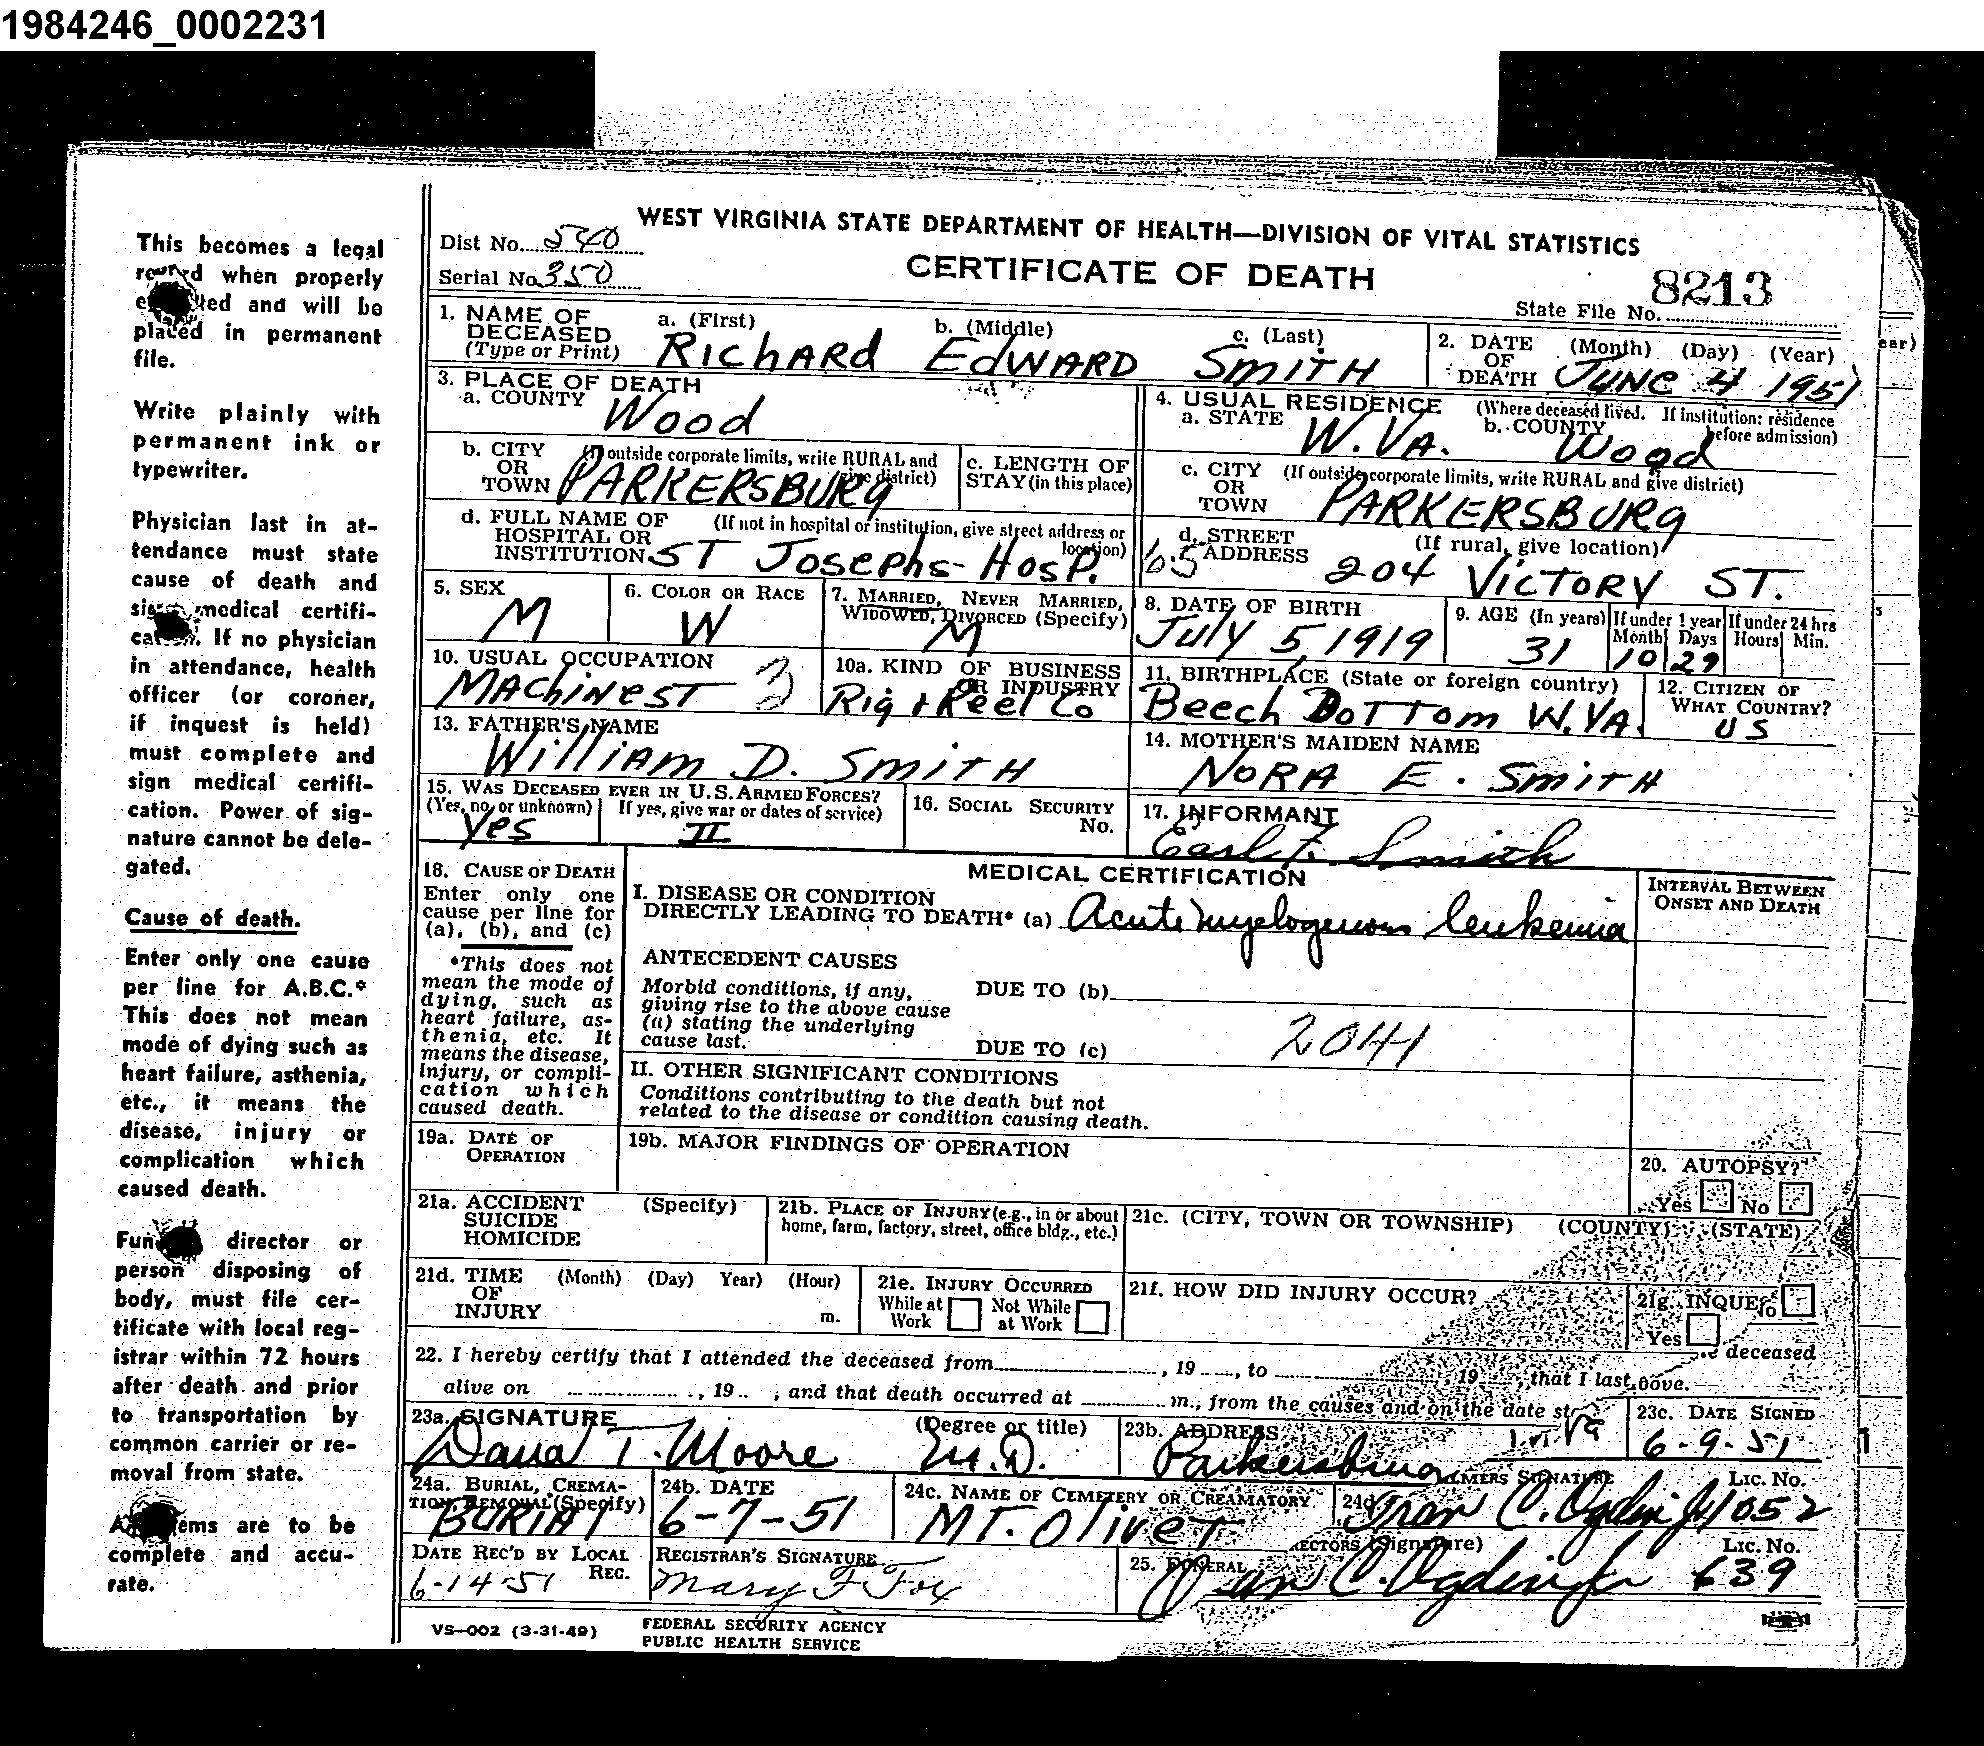 1984246_0002231
This becomes a legal
when properly
and will be
placed in permanent
file.
Write plainly with
permanent ink or
typewriter.
Physician last in at-
tendance must state
cause of death and
medical certifi-
If no physician
in attendance, health
officer (or coroner,
if inquest is held)
must complete and
sign medical certifi-
cation. Power of sig-
nature cannot be dele-
gated.
Cause of death.
Enter only one cause
per line for A.B.C.*
This does not mean
mode of dying such as
heart failure, asthenia,
etc., it means the
disease, injury or
complication which
caused death.
director or
person disposing of
body, must file cer-
tificate with local reg-
istrar within 72 hours
after death and prior
to transportation by
common carrier or re-
moval from state.
are to be
complete and accu-
rate.
WEST VIRGINIA STATE DEPARTMENT OF HEALTH—DIVISION OF VITAL STATISTICS
Dist No. 540
Serial No. 350
CERTIFICATE OF DEATH
State File No. 8213
1. NAME OF DECEASED (Type or Print) a. (First) b. (Middle) c. (Last)
RichARd EdWARD SmiTH
2. DATE OF DEATH (Month) (Day) (Year)
JUNE 4 1951
3. PLACE OF DEATH
a. COUNTY Wood
4. USUAL RESIDENCE (Where deceased lived. If institution: residence before admission)
a. STATE W. VA. b. COUNTY Wood
b. CITY OR TOWN (If outside corporate limits, write RURAL and give district)
PARKERSBURg
c. LENGTH OF STAY (in this place)
c. CITY OR TOWN (If outside corporate limits, write RURAL and give district)
PARKERSBURg
d. FULL NAME OF HOSPITAL OR INSTITUTION (If not in hospital or institution, give street address or location)
ST Josephs- Hosp.
d. STREET ADDRESS (If rural, give location)
65 204 VICTORY ST.
5. SEX M
6. COLOR OR RACE W
7. MARRIED, NEVER MARRIED, WIDOWED, DIVORCED (Specify) M
8. DATE OF BIRTH July 5, 1919
9. AGE (In years) 31
If under 1 year Month 10 Days 29
If under 24 hrs Hours Min.
10. USUAL OCCUPATION MAchinesT
10a. KIND OF BUSINESS OR INDUSTRY Rig + Reel Co
11. BIRTHPLACE (State or foreign country) Beech BoTTom W.VA.
12. CITIZEN OF WHAT COUNTRY? US
13. FATHER'S NAME William D. SmiTH
14. MOTHER'S MAIDEN NAME NORA E. SmiTH
15. WAS DECEASED EVER IN U.S. ARMED FORCES?
(Yes, no, or unknown) Yes
If yes, give war or dates of service) II
16. SOCIAL SECURITY No.
17. INFORMANT Earl F. Smith
18. CAUSE OF DEATH
Enter only one
cause per line for
(a), (b), and (c)
*This does not
mean the mode of
dying, such as
heart failure, as-
thenia, etc. It
means the disease,
injury, or compli-
cation which
caused death.
MEDICAL CERTIFICATION
INTERVAL BETWEEN ONSET AND DEATH
I. DISEASE OR CONDITION
DIRECTLY LEADING TO DEATH* (a) Acute myelogenous leukemia
ANTECEDENT CAUSES
Morbid conditions, if any,
giving rise to the above cause
(a) stating the underlying
cause last.
DUE TO (b)
DUE TO (c)
2041
II. OTHER SIGNIFICANT CONDITIONS
Conditions contributing to the death but not
related to the disease or condition causing death.
19a. DATE OF OPERATION
19b. MAJOR FINDINGS OF OPERATION
20. AUTOPSY?
Yes No
21a. ACCIDENT SUICIDE HOMICIDE (Specify)
21b. PLACE OF INJURY (e.g., in or about
home, farm, factory, street, office bldg., etc.)
21c. (CITY, TOWN OR TOWNSHIP) (COUNTY) (STATE)
21d. TIME OF INJURY (Month) (Day) Year) (Hour) m.
21e. INJURY OCCURRED
While at Work Not While at Work
21f. HOW DID INJURY OCCUR?
21g. INQUEST
Yes
22. I hereby certify that I attended the deceased from , 19 , to , 19 , that I last deceased
alive on , 19 , and that death occurred at m., from the causes and on the date above.
23a. SIGNATURE (Degree or title)
Dana T. Moore M.D.
23b. ADDRESS
Parkersburg W Va
23c. DATE SIGNED
6-9-51
24a. BURIAL, CREMATION, REMOVAL (Specify)
BURIAl
24b. DATE
6-7-51
24c. NAME OF CEMETERY OR CREAMATORY
MT. OliveT
24d. SIGNATURE LIC. NO.
C. Ogdin Jr 1052
DATE REC'D BY LOCAL REG.
6-14-51
REGISTRAR'S SIGNATURE
Mary F Fox
25. FUNERAL DIRECTORS (Signature) LIC. NO.
C. Ogdin Jr 639
VS-002 (3-31-49)
FEDERAL SECURITY AGENCY
PUBLIC HEALTH SERVICE